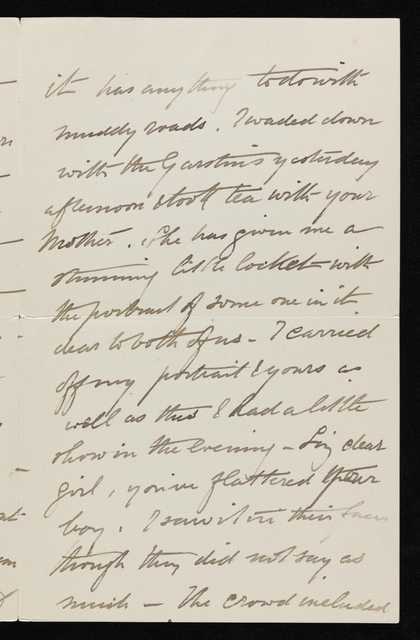 it has anything to do with
muddy roads. I waded down
with the Garstins yesterday
afternoon & took tea with your
Mother. She has given me a
stunning little locket with
the portrait of some one in it
dear to both of us - I carried
off my portrait & yours as
well as this & had a little
show in the evening - Liz dear
girl, you've flattered your
boy. I saw it in their faces
though they did not say as
much - The crowd included